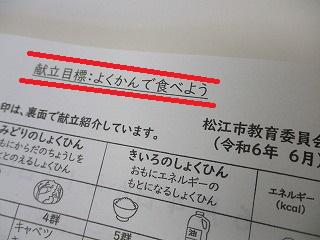 献立目標：よくかんで食べよう
印は、裏面で献立紹介しています。
松江市教育委員会
(令和6年 6月)
みどりのしょくひん
もにからだのちょうしを
ととのえるしょくひん
きいろのしょくひん
おもにエネルギーの
もとになるしょくひん
エネルギー
(kcal)
油
4群
5群
キャベツ